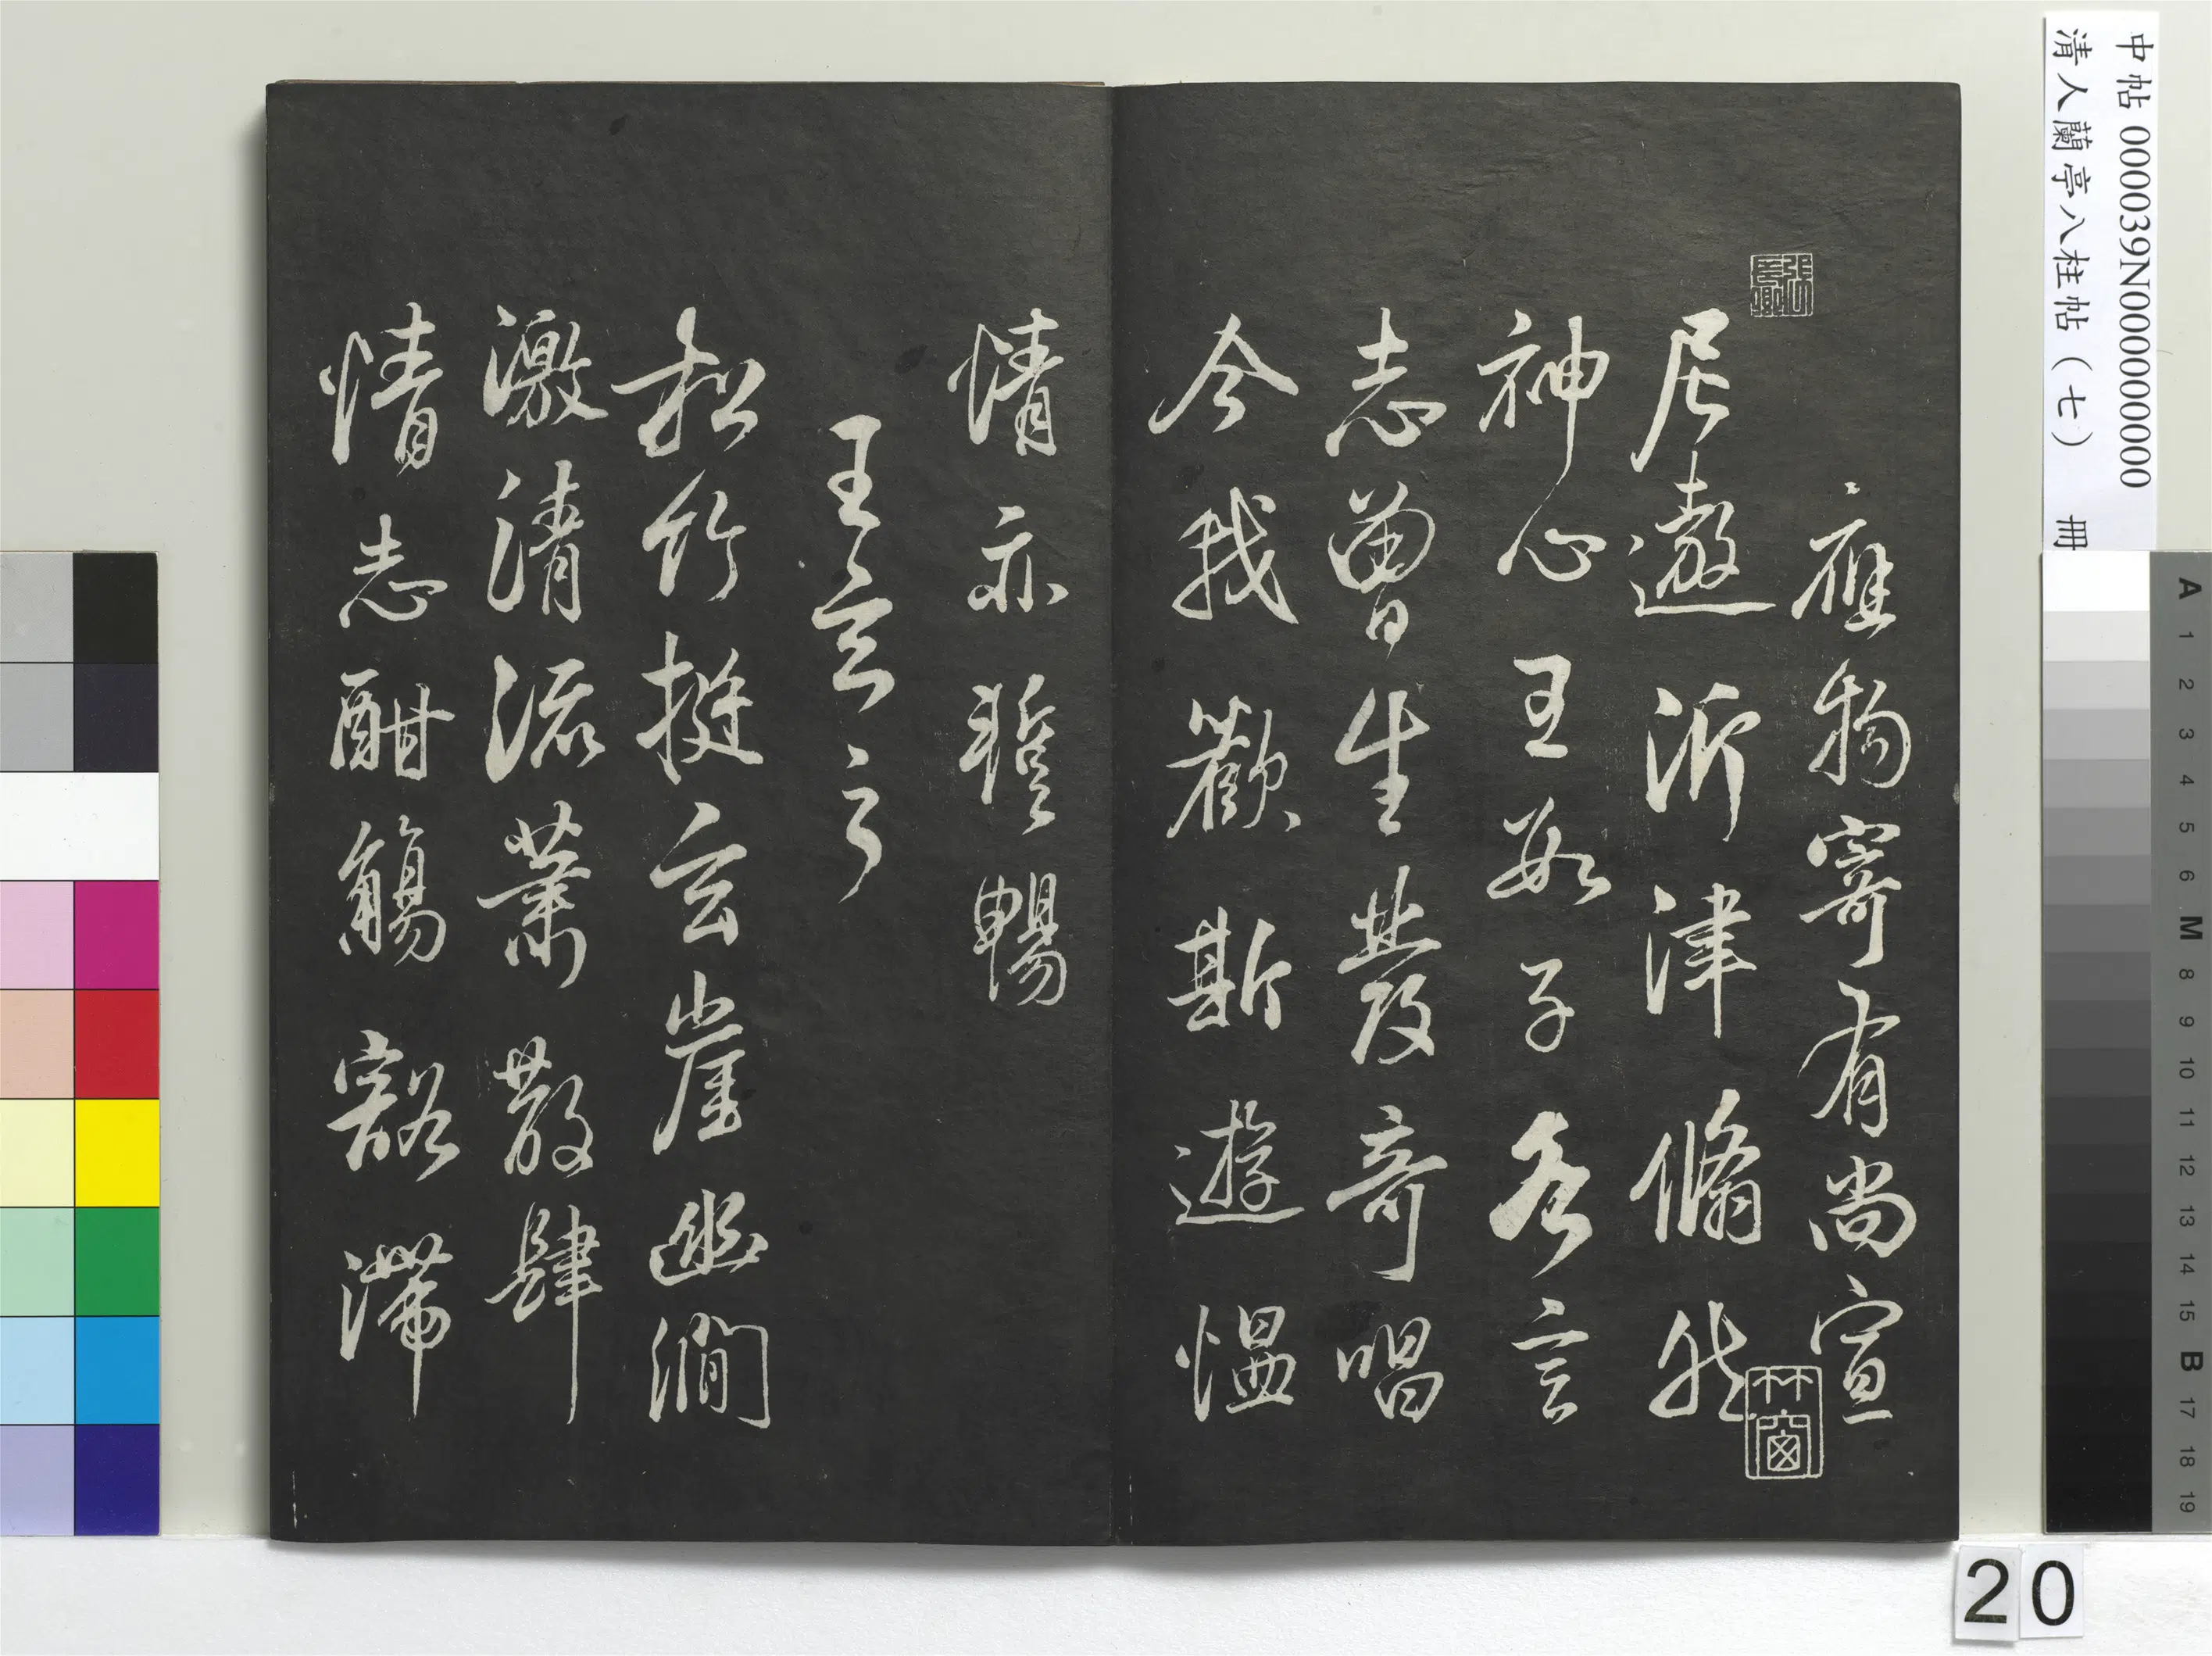 中帖 000039N000000000
清人蘭亭八柱帖（七） 冊
應物寄有尚宣
尼遨沂津翛然
神心王數子各言
志曾生發奇唱
今我歡斯遊慍
情亦蹔暢
王玄之
松竹挺玄崖幽澗
激清流蕭散肆
情志酣觴豁滯
竹窗
A 1 2 3 4 5 6 M 8 9 10 11 12 13 14 15 B 17 18 19
20